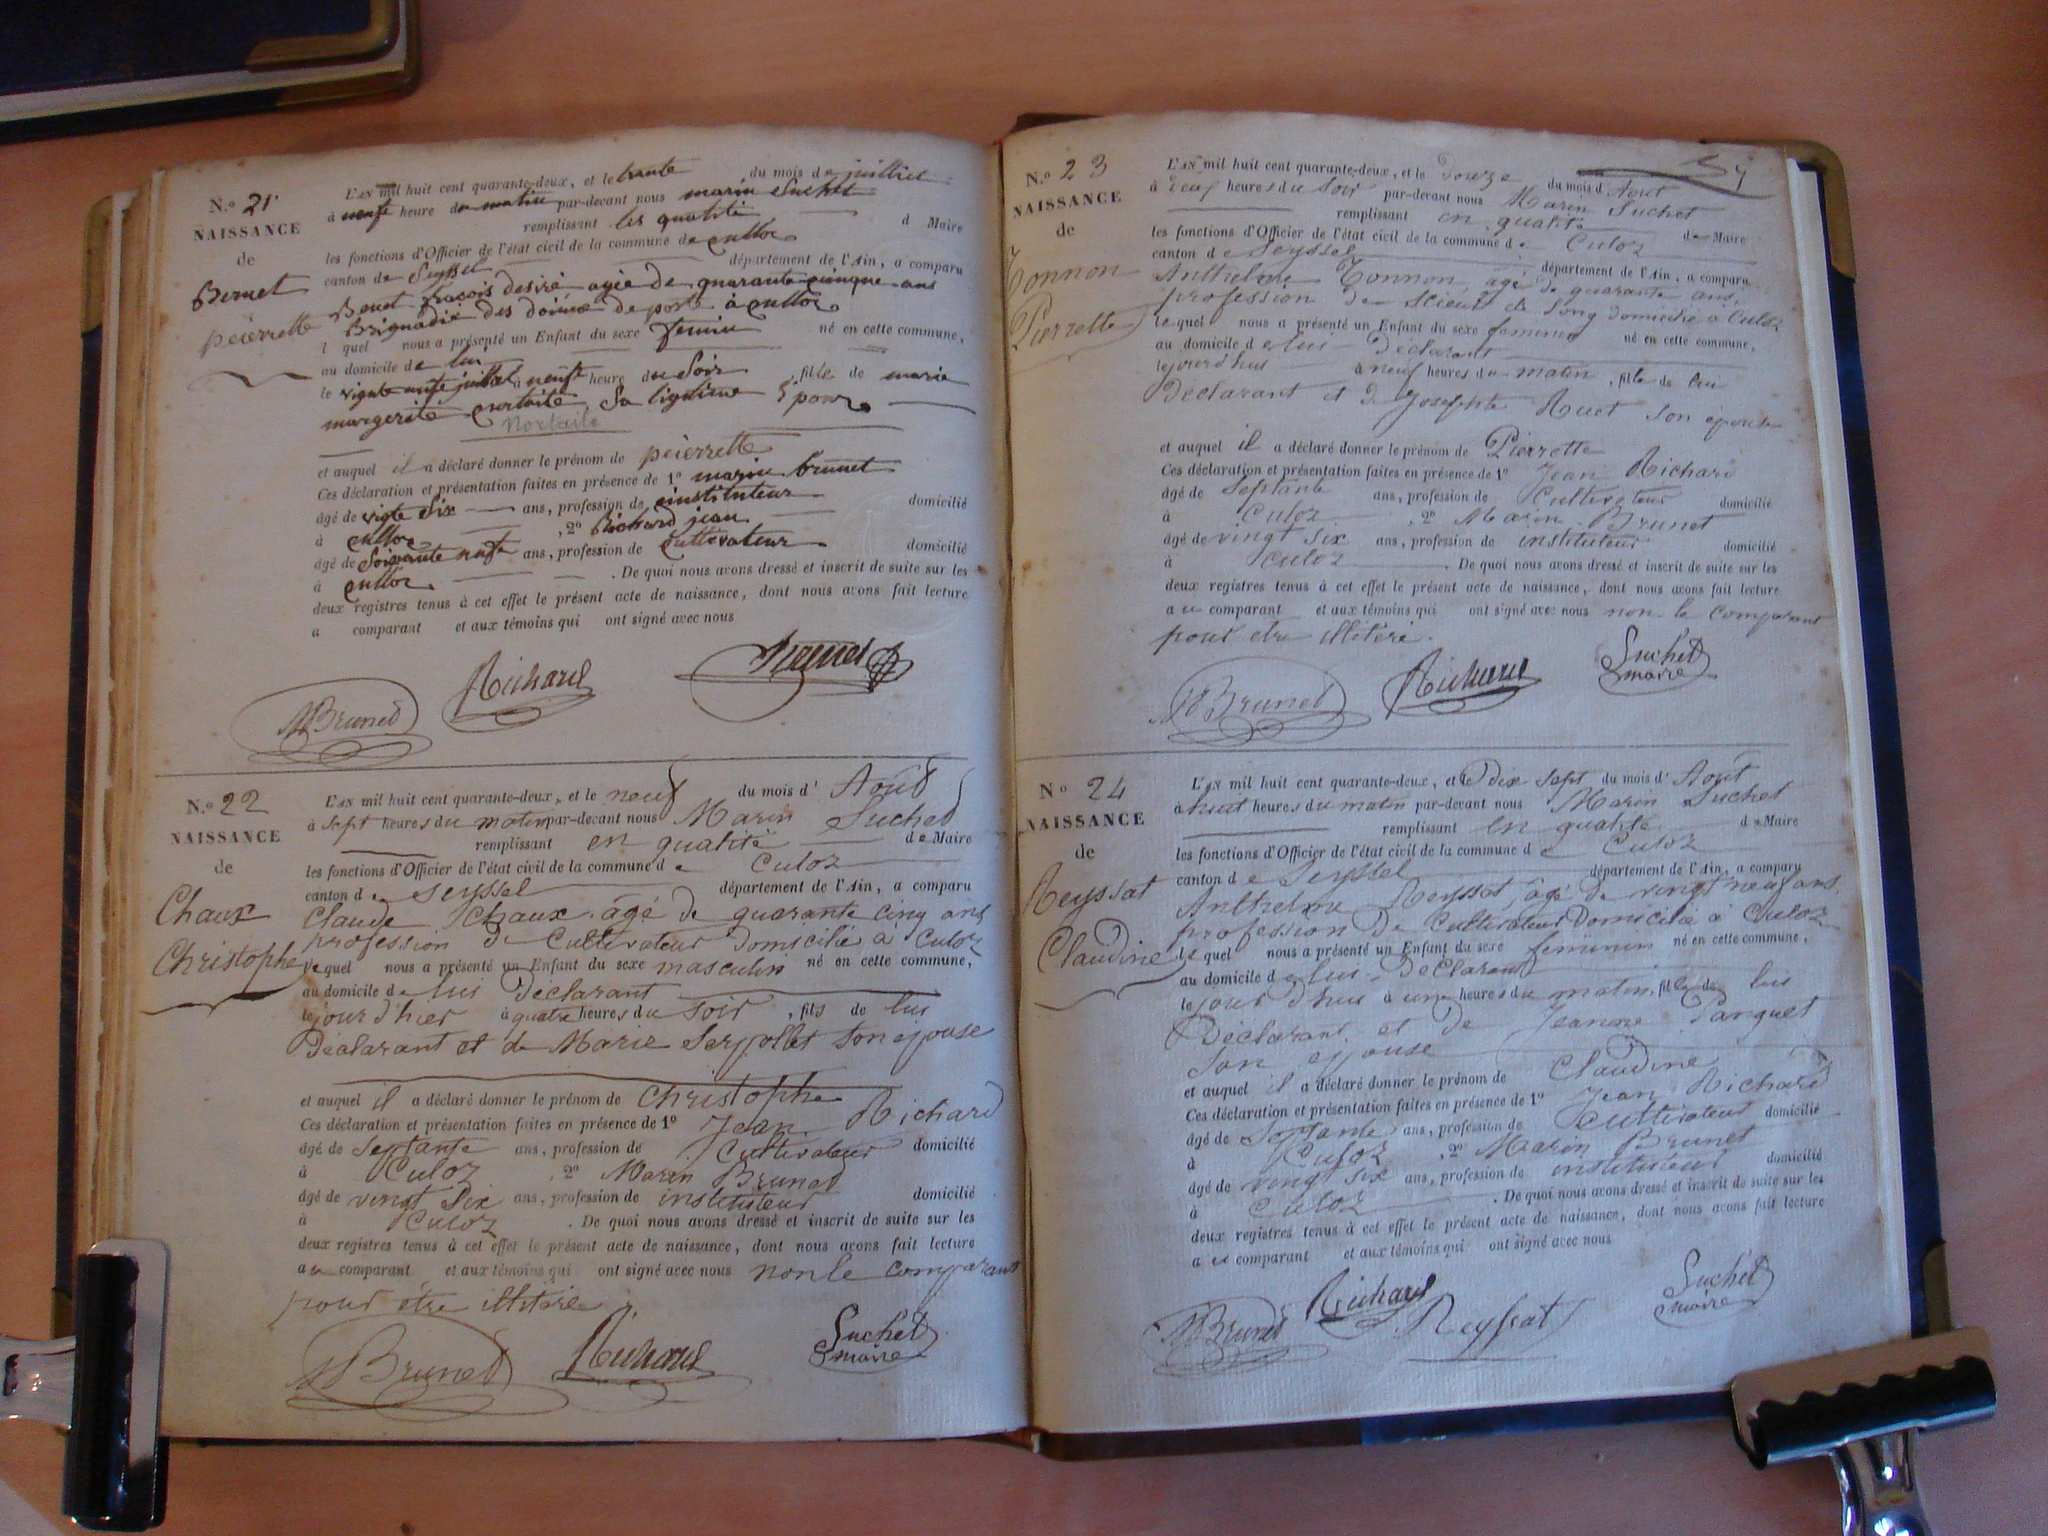 N.o 21
NAISSANCE
de
Bernet
peierrette
L'AN mil huit cent quarante-deux, et le trante du mois de juilliet
à neufe heure du matin par-devant nous marin Suchet
remplissant les qualité d Maire
les fonctions d'Officier de l'état civil de la commune de culloz
canton de Seyssel département de l'Ain, a comparu
agée de quarante cinque ans
de porte à culloz
l quel nous a présenté un Enfant du sexe femin né en cette commune,
au domicile de lui
le juillet à neufe heure du Soir , fille de marie
margerite Sa ligitime
Nortaile
et auquel il a déclaré donner le prénom de peierrette
Ces déclaration et présentation faites en présence de 1o marin brunet
âgé de vigte Six ans, profession de einstituteur domicilié
à culloz , 2o Richard jean
âgé de Soixante neufe ans, profession de cultivateur domicilié
à culloz . De quoi nous avons dressé et inscrit de suite sur les
deux registres tenus à cet effet le présent acte de naissance, dont nous avons fait lecture
a comparant et aux témoins qui ont signé avec nous
MBrunet Richard
N.o 22
NAISSANCE
de
Chaux
Christophe
L'AN mil huit cent quarante-deux, et le neuf du mois d' Août
à Sept heures du matin par-devant nous Marin Suchet
remplissant en qualité de Maire
les fonctions d'Officier de l'état civil de la commune de Culoz
canton de Seyssel département de l'Ain, a comparu
Claude Chaux âgé de quarante cinq ans
profession de Cultivateur Domicilié à Culoz
lequel nous a présenté un Enfant du sexe masculin né en cette commune,
au domicile de lui Déclarant
le jour d'hier à quatre heures du Soir , fils de lui
Déclarant et de Marie Serpollet Son epouse
et auquel il a déclaré donner le prénom de Christophe
Ces déclaration et présentation faites en présence de 1o Jean Richard
âgé de Septante ans, profession de Cultivateur domicilié
à Culoz , 2o Marin Brunet
âgé de vingt Six ans, profession de instituteur domicilié
à Culoz . De quoi nous avons dressé et inscrit de suite sur les
deux registres tenus à cet effet le présent acte de naissance, dont nous avons fait lecture
au comparant et aux témoins qui ont signé avec nous non le comparant
pour être illitéré
MBrunet Richard Suchet
maire
N.o 23
NAISSANCE
de
Tonnon
Pierrette
L'AN mil huit cent quarante-deux, et le Douze du mois d' Aout
à neuf heures du Soir par-devant nous Marin Suchet
remplissant en qualité de Maire
les fonctions d'Officier de l'état civil de la commune de Culoz
canton de Seyssel département de l'Ain, a comparu
Anthelme Tonnon, âgé de quarante ans,
profession de Scieur de Long domicilié à Culoz
lequel nous a présenté un Enfant du sexe feminin né en cette commune,
au domicile de lui Déclarant
le jourd'hui à neuf heures du matin , fille de lui
Déclarant et de Josephte Ruet Son epouse
et auquel il a déclaré donner le prénom de Pierrette
Ces déclaration et présentation faites en présence de 1o Jean Richard
âgé de Septante ans, profession de Cultivateur domicilié
à Culoz , 2o Marin Brunet
âgé de vingt six ans, profession de instituteur domicilié
à Culoz . De quoi nous avons dressé et inscrit de suite sur les
deux registres tenus à cet effet le présent acte de naissance, dont nous avons fait lecture
au comparant et aux témoins qui ont signé avec nous non le comparant
pour etre illitéré.
MBrunet Richard Suchet
maire
No 24
NAISSANCE
de
Reyssat
Claudine
L'AN mil huit cent quarante-deux, et le Dix Sept du mois d' Août
à huit heures du matin par-devant nous Marin Suchet
remplissant en qualité de Maire
les fonctions d'Officier de l'état civil de la commune de Culoz
canton de Seyssel département de l'Ain, a comparu
Anthelme Reyssat, âgé de vingt neuf ans,
profession de Cultivateur Domicilié à Culoz
lequel nous a présenté un Enfant du sexe feminin né en cette commune,
au domicile de lui Déclarant
le jour d'hui à une heures du matin, fille de lui
Déclarant et de Jeanne Panguet
Son epouse
et auquel il a déclaré donner le prénom de Claudine
Ces déclaration et présentation faites en présence de 1o Jean Richard
âgé de Septante ans, profession de Cultivateur domicilié
à Culoz , 2o Marin Brunet
âgé de vingt six ans, profession de instituteur domicilié
à Culoz . De quoi nous avons dressé et inscrit de suite sur les
deux registres tenus à cet effet le présent acte de naissance, dont nous avons fait lecture
au comparant et aux témoins qui ont signé avec nous
MBrunet Richard Reyssat Suchet
maire